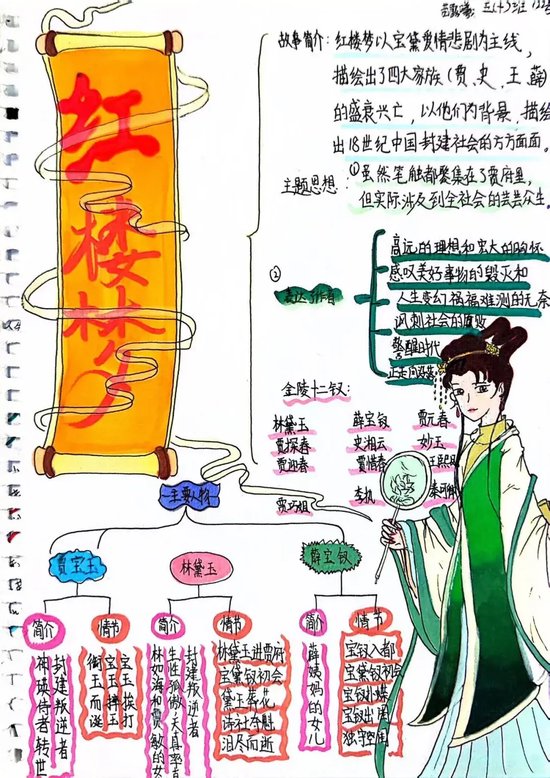 红楼梦
故事简介：红楼梦以宝黛爱情悲剧为主线，
描绘出了四大家族（贾、史、王、薛）
的盛衰兴亡，以他们为背景，描绘
出18世纪中国封建社会的方方面面。
主题思想：①虽然笔触都聚集在了贾府里，
但实际涉及到全社会的芸芸众生。
②
表达了作者
高远的理想和宏大的胸怀
感叹美好事物的毁灭和
人生变幻祸福难测的无奈
讽刺社会的腐败
警醒时代
金陵十二钗：
林黛玉 薛宝钗 贾元春
贾探春 史湘云 妙玉
贾迎春 贾惜春 王熙凤
贾巧姐 李纨 秦可卿
主要人物
贾宝玉
简介
封建叛逆者
神瑛侍者转世
情节
宝玉挨打
宝玉摔玉
衔玉而诞
林黛玉
简介
封建叛逆者
生性孤傲，天真率直
林如海和贾敏的女
情节
林黛玉进贾府
宝黛初会
黛玉葬花
诗社夺魁
泪尽而逝
薛宝钗
简介
薛姨妈的女儿
情节
宝钗入都
宝黛初会
宝钗扑蝶
宝钗出闺
独守空闺